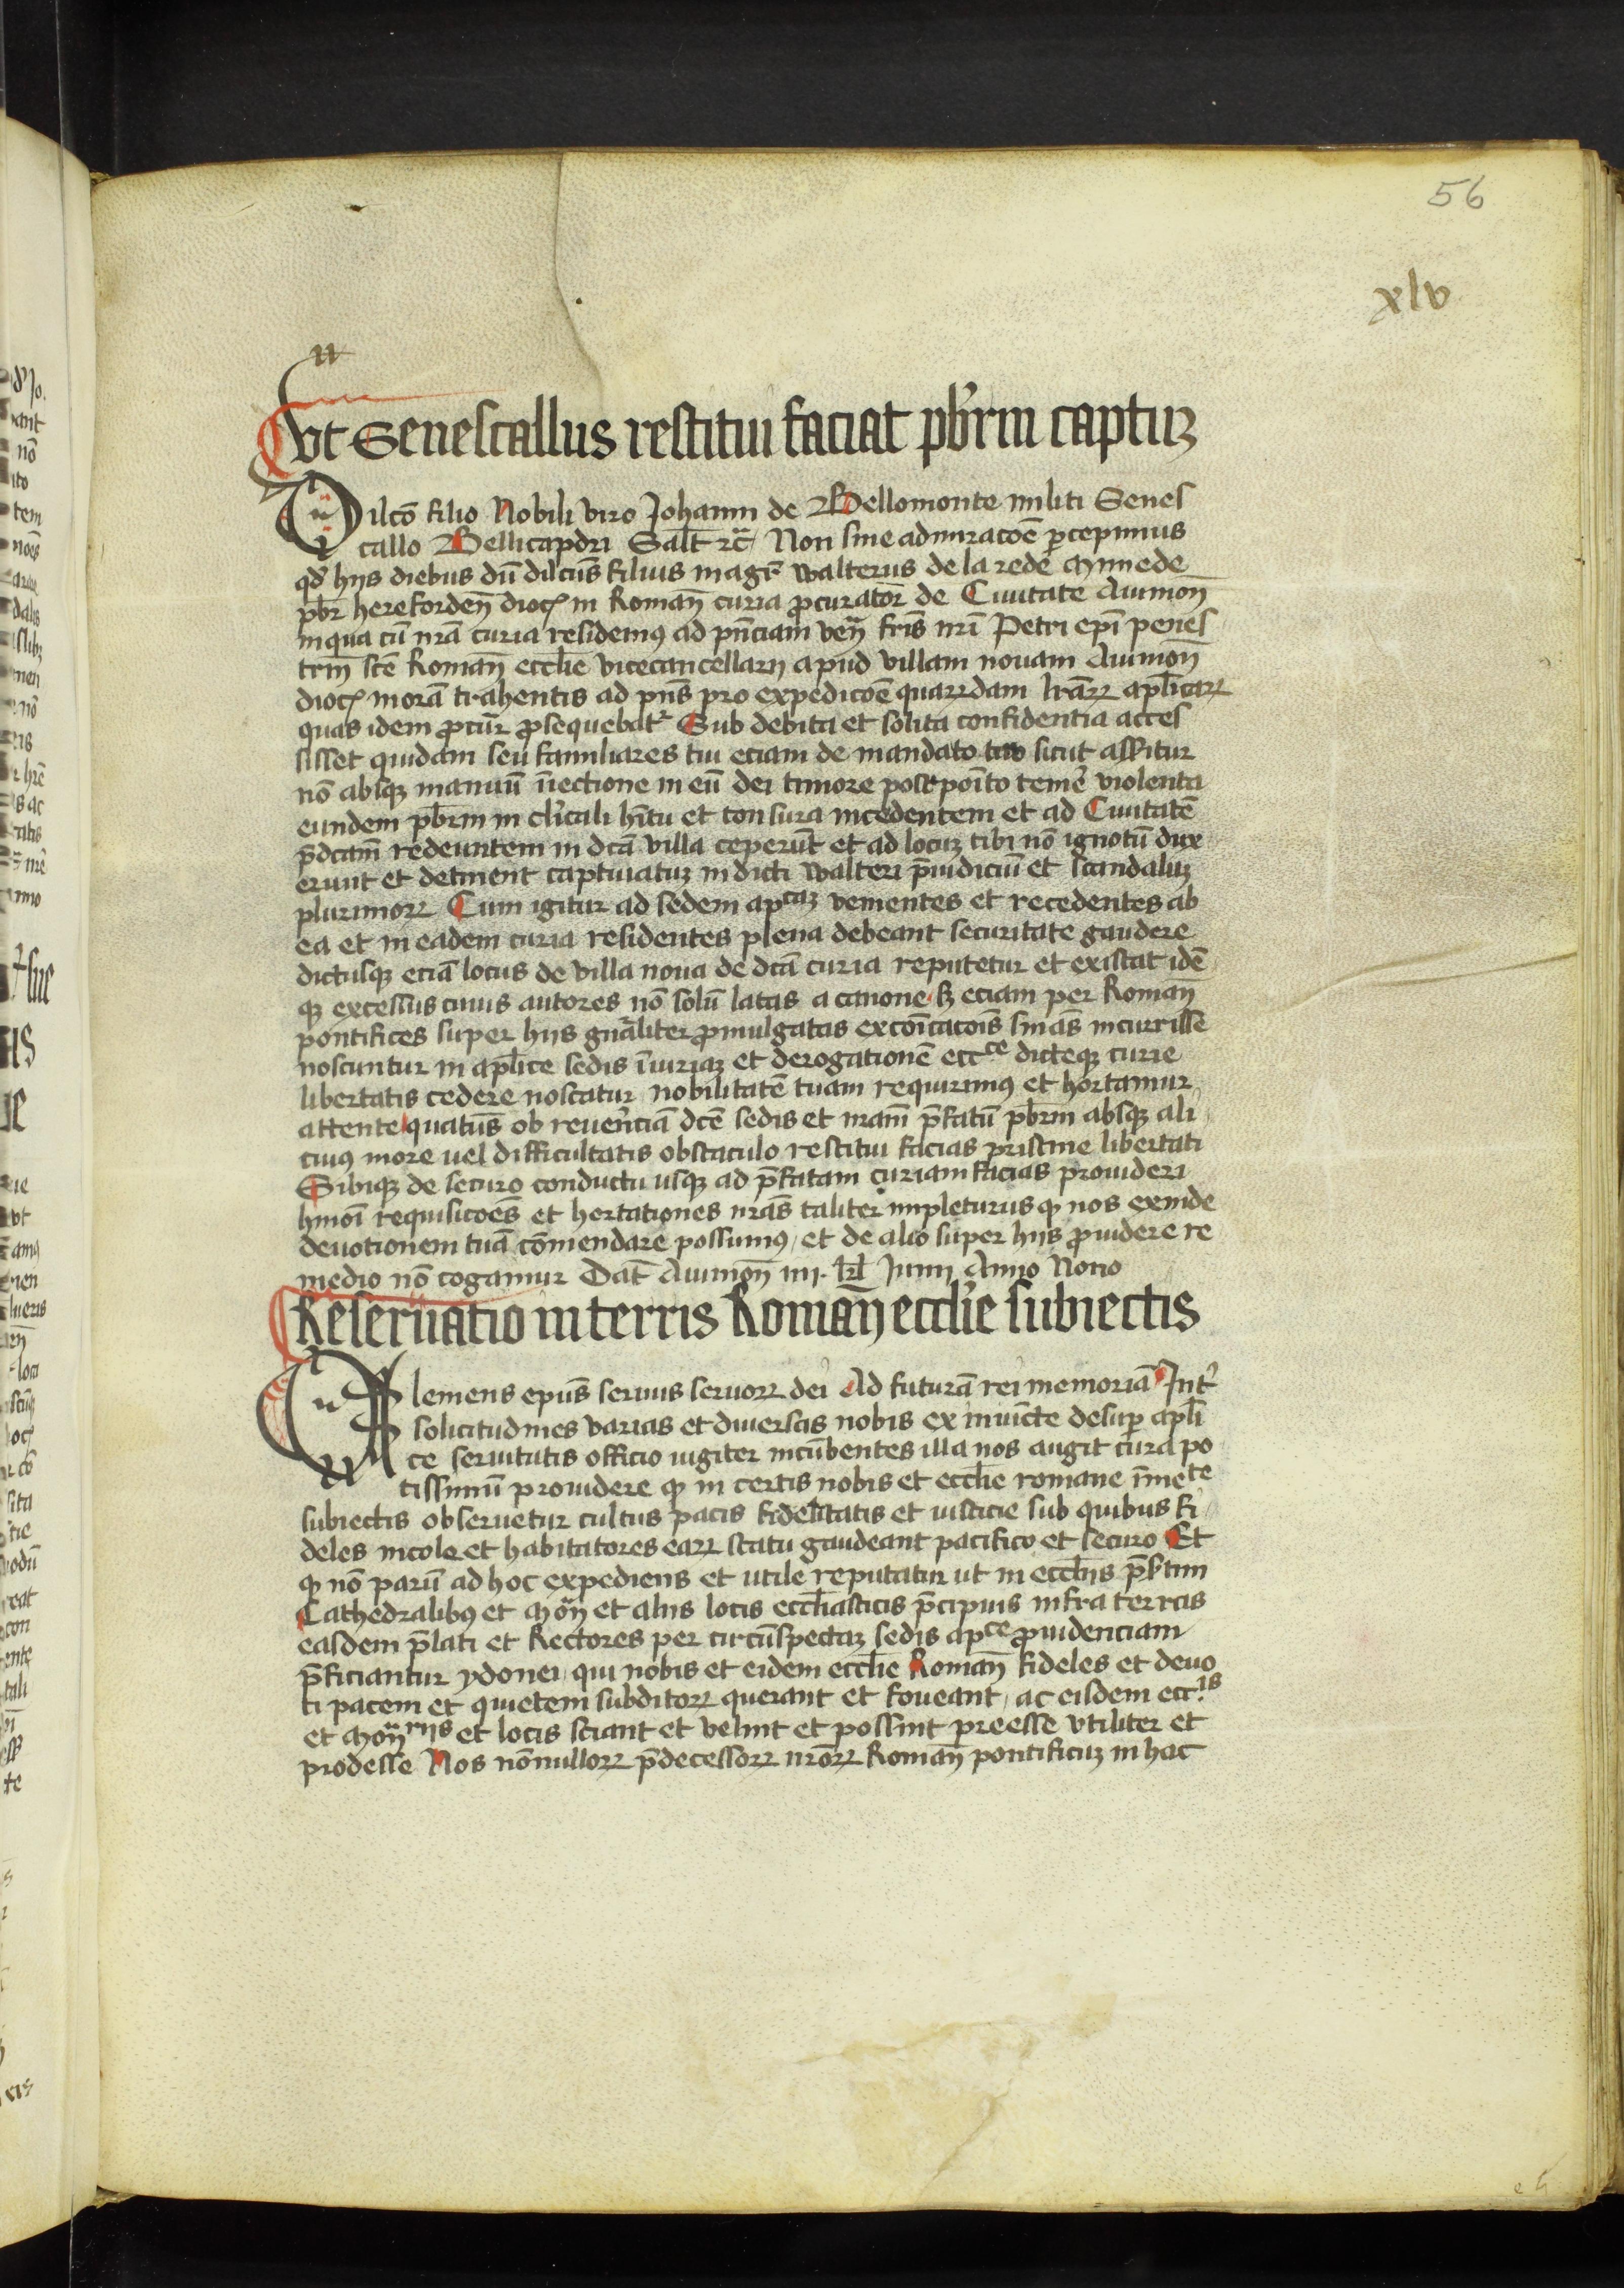 56
xlv
Ut Senescallus restitui faciat pbrm captuꝫ
Dilcō filio Nobili viro Johanni de Bellomonte militi Senes
callo Bellicapdri Salt̄ ⁊c̄ Non sine admiracōe ꝑcepimus
qđ hijs diebus dū dilcūs filius magr̄ walterus de la rede
pbr̄ herefordeñ dioc̄ in Romañ curia ꝓcurator̄ de Ciuitate Auinioñ
in qua cū nr̄a curia residemꝰ ad pn̄ciam veñ fr̄is nr̄i Petri epī penes
trin̄ sc̄e Romañ eccl̄ie vicecancellarij apud villam nouam Auinioñ
dioc̄ morā trahentis ad pn̄s pro expedicōe quarꝝdam lr̄arꝝ apl̄icarꝝ
quas idem ꝓcur̄ ꝓsequebatʳ Sub debita et solita confidentia acces
sisset quidam seu familiares tui eciam de mandato tuo sicut asseritur
nō absqꝫ manuū iniectione in eū dei timore postpoīto temẽ violenta
eundem pbrm in cl̄icali hītu et tonsura incedentem et ad Ciuitatē
p̄dcam̄ redeuntem in dcā villa ceperūt et ad locuꝫ tibi nō ignotū dux
erunt et detinent captiuatuꝫ in dicti walteri p̄iudiciū et scandaluꝫ
plurimorꝝ Cum igitur ad sedem apcaꝫ venientes et recedentes ab
ea et in eadem curia residentes plena debeant securitate gaudere
dictusqꝫ eciā locus de villa noua de dcā curia reputetur et existat idē
qꝫ excessus cuius autores nō solū latas a canone sꝫ eciam per Romañ
pontifices super hijs gn̄aliter ꝓmulgatas excōicacōis sn̄ias incurrisse
noscuntur in apl̄ice sedis iniuriaꝫ et derogationē eccce dicteqꝫ curie
libertatis cedere noscatur nobilitatē tuam requirimꝰ et hortamur
attente quatūs ob reuer̄nciā dcē sedis et nram̄ p̄fatū pbrm absqꝫ ali
cuiꝰ more uel difficultatis obstaculo restitui facias pristine libertati
Sibiqꝫ de securo conductu usqꝫ ad p̄fatam curiam facias prouideri
hmōi requisicōes et hortationes nr̄as taliter impleturus qꝫ nos exinde
deuotionem tuā cōmendare possumꝰ et de alio super hijs ꝓuidere re
medio nō cogamur Dat̄ Auinioñ iiij. kl Junij Anno Nono
Reseruatio in terris Romañ eccl̄ie subiectis
Clemens ep̄us seruus seruorꝝ dei Ad futurā rei memoriā Int̄
solicitudines varias et diuersas nobis ex iniuncte desuꝑ apl̄i
ce seruitutis officio iugiter incūbentes illa nos angit cura po
tissimū prouidere qꝫ in certis nobis et eccl̄ie romane īmete
subiectis obseruetur cultus pacis fidelitatis et iusticie sub quibus fi
deles incole et habitatores earꝝ statu gaudeant pacifico et securo Et
qꝫ nō parū ad hoc expediens et utile reputatur ut in eccl̄ijs p̄s̄tim
Cathedralibꝰ et Moñ et alijs locis eccl̄iasticis p̄cipuis infra terras
easdem p̄lati et Rectores per circūspectaꝫ sedis apce ꝓuidenciam
p̄ficiantur ydonei qui nobis et eidem eccl̄ie Romañ fideles et deuo
ti pacem et quietem subditorꝝ querant et foueant ac eisdem ecc.is
et Moñrijs et locis sciant et velint et possint preesse vtiliter et
prodesse Nos nōnullorꝝ p̄decessorꝝ nr̄orꝝ Romañ pontificuꝫ in hac